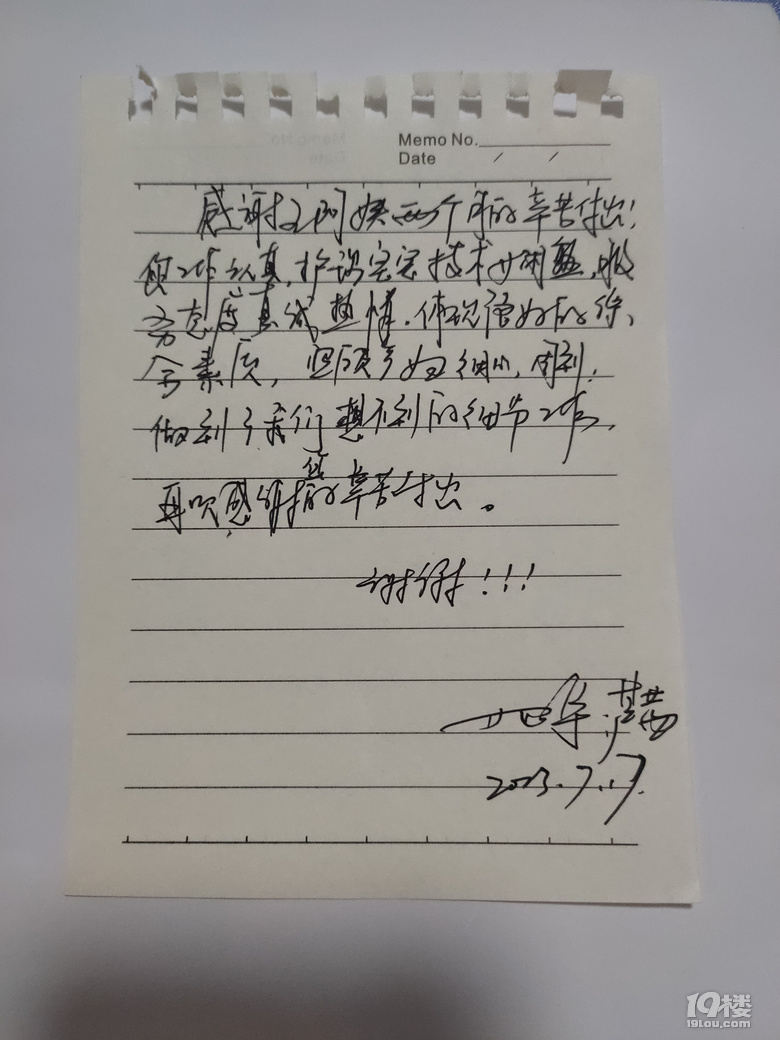 Memo No.
Date / /
感谢王阿姨两个月的辛苦付出!
您工作认真,护理宝宝技术娴熟,服
务态度真诚热情.体现语好的综
合素质,照顾产妇细心,周到.
做到了我们想不到的细节工作,
再次感谢您的辛苦付出。
谢谢!!!
2023.7.17.
19楼
19lou.com